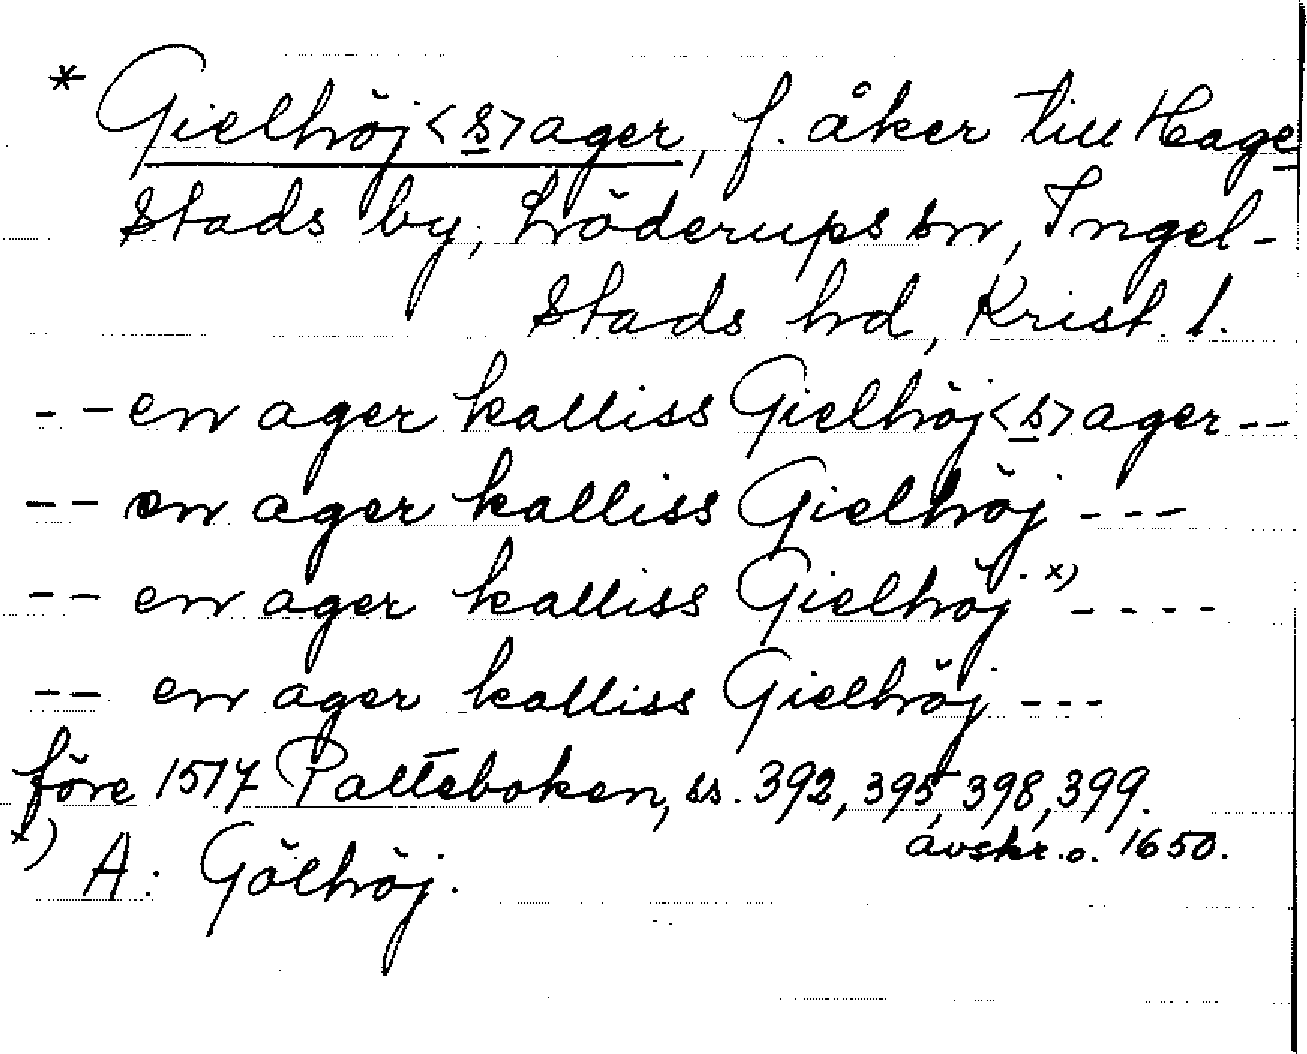 * Gielhöj<s>ager, f. åker till Hage
stads by, Löderups sn, Ingel-
stads hd, Krist. l.
-- en ager kalliss Gielhöj<s>ager --
-- en ager kalliss Gielhöj ---
-- en ager kalliss Gielhöj x) ----
-- en ager kalliss Gielhöj ---
före 1517 Palteboken, ss. 392, 395, 398, 399.
avskr. o. 1650.
x) A: Gölhöj.